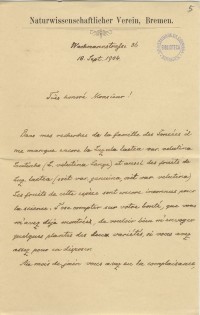 5
Naturwissenschaftlicher Verein, Bremen.
Wachmannstrasse 36
18. Sept. 1904
Très honoré Monsieur!
Dans mes recherches de la famille des Joncées il
me manque encore la Luzula lactea var. velutina
(L. velutina Lange) et aussi des fruits de
Luz. lactea (soit var. genuina, soit var. velutina)
Les fruits de cette espèce sont encore inconnus pour
la science. J'ose compter sur votre bonté, que vous
m'avez déjà montrée, de vouloir bien m'envoyer
quelques plantes des deux variétés, si vous avez
assez pour en disposer.
Au mois de juin vous avez eu la complaisance